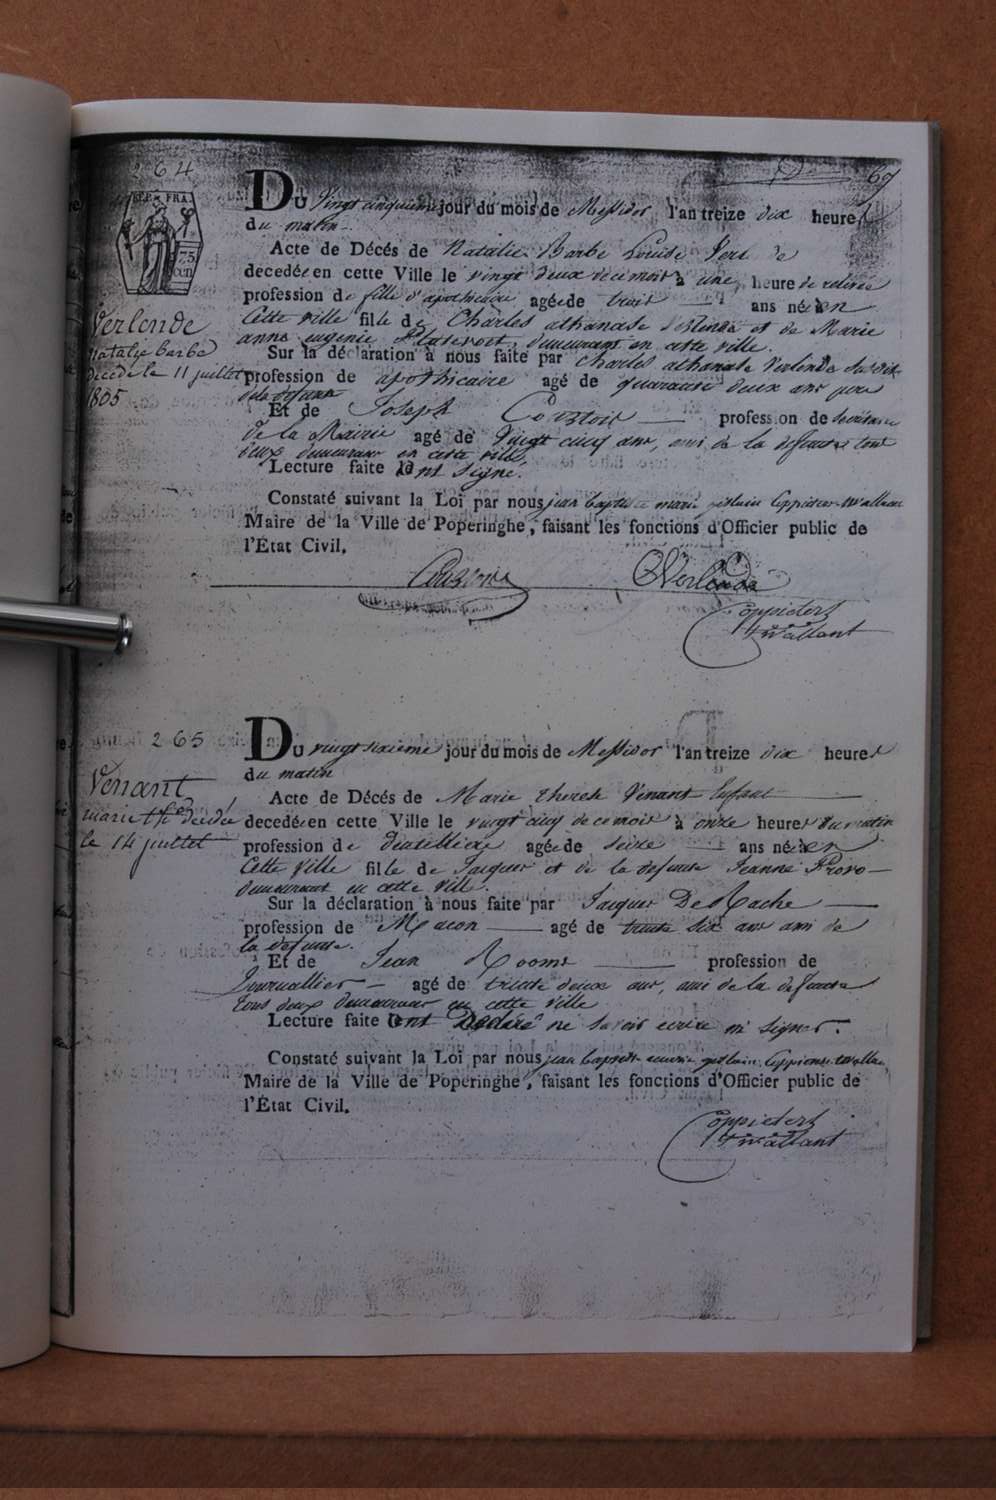 264
67
REP. FRA.
75
cen
Verlende
Natalie Barbe
decede le 11 juillet
1805
DU Vingt cinquieme jour du mois de Messidor l'an treize dix heures
du matin
Acte de Décés de Natalie Barbe Louise Verl de
decedée en cette Ville le vingt deux de ce mois à une heure de relevée
profession de fille d'apothicaire agée de trois ans née en
Cette ville fille de Charles athanase Verlende et de Marie
anne eugenie demeurant en cette ville.
Sur la déclaration à nous faite par Charles athanase Verlende susdit
profession de apothicaire agé de quarante deux ans pere
de la defunte
Et de Joseph profession de secrétaire
de la Mairie agé de Vingt cinq ans, ami de la defunte tous
deux demeurans en cette ville
Lecture faite ont signé.
Constaté suivant la Loi par nous jean baptiste marie gislain Coppieters wallant
Maire de la Ville de Poperinghe, faisant les fonctions d'Officier public de
l'État Civil.
CVerlende
Coppieters
t' wallant
265
Venant
marie th.se decedée
le 14 juillet
DU vingt sixieme jour du mois de Messidor l'an treize dix heures
du matin
Acte de Décés de Marie therese Venant
decedée en cette Ville le vingt cinq de ce mois à onze heures du matin
profession de dentelliere agée de seize ans née en
Cette Ville fille de Jacques et de la defunte Jeanne Provo
demeurant en cette ville.
Sur la déclaration à nous faite par Jacques De Rache
profession de Macon agé de trente six ans ami de
la defunte.
Et de Jean Rooms profession de
Journallier agé de trente deux ans, ami de la defunte
tous deux demeurans en cette ville
Lecture faite ont Declaré ne savoir ecrire ni signer.
Constaté suivant la Loi par nous jean baptiste marie gislain Coppieters wallant
Maire de la Ville de Poperinghe, faisant les fonctions d'Officier public de
l'État Civil.
Coppieters
t' wallant